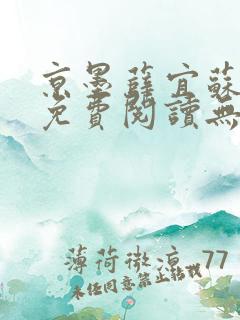 京墨薛宜蘇
免費閱讀無
薄荷微涼 77
未經同意禁止轉載